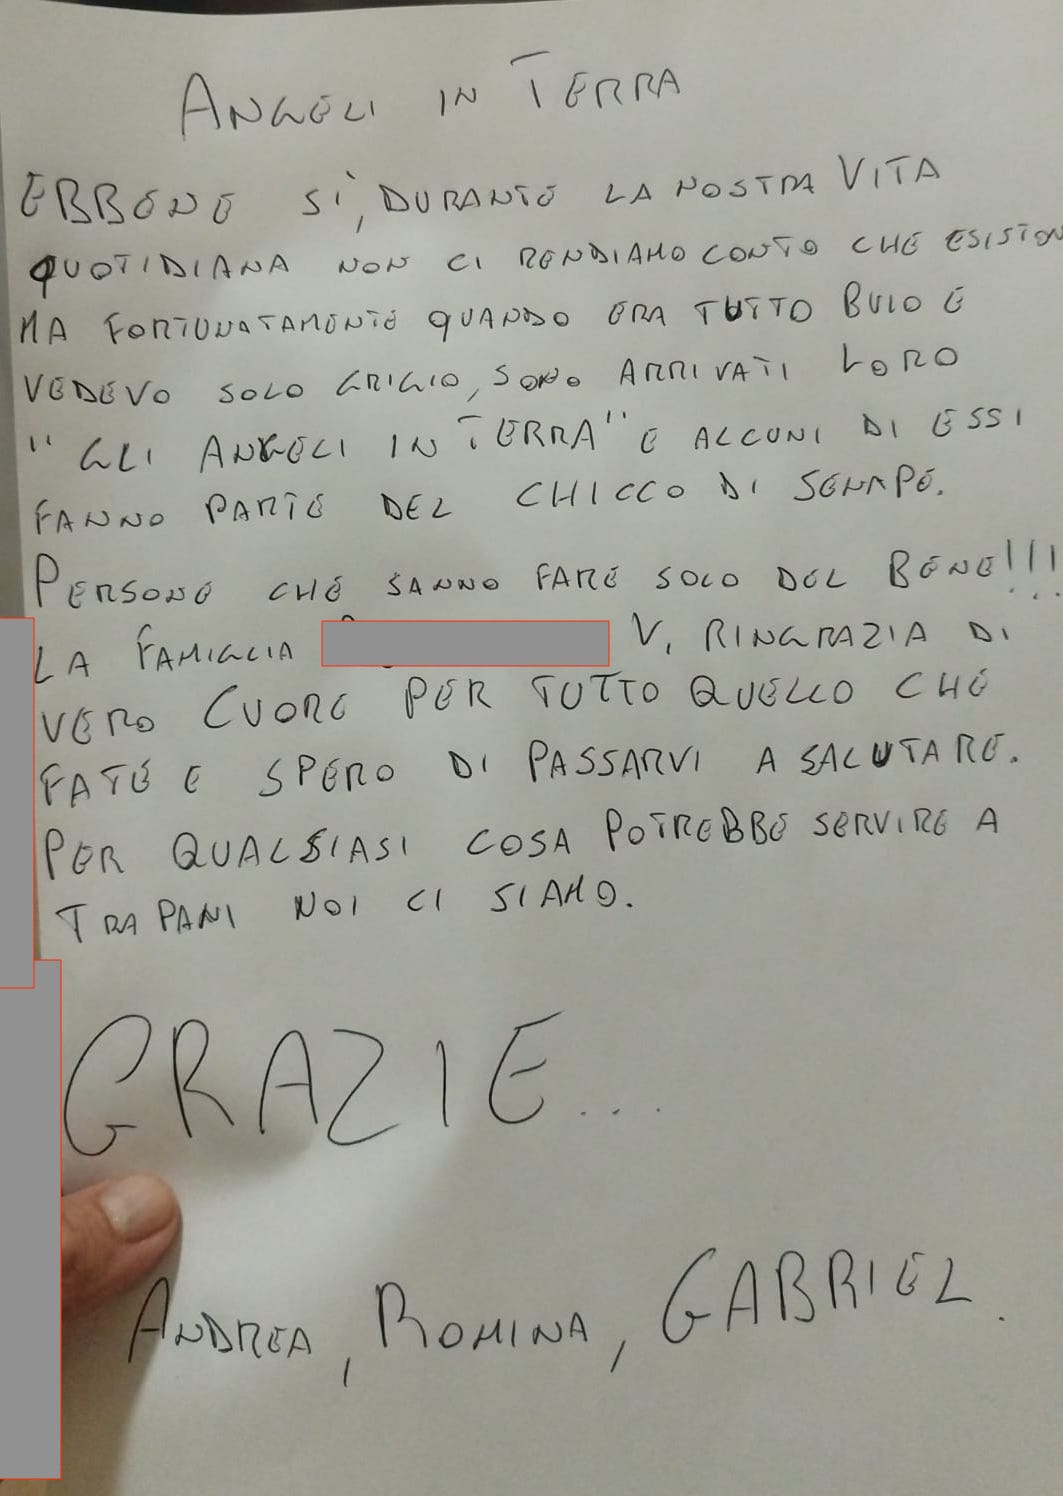 ANGELI IN TERRA
EBBENE SÌ, DURANTE LA NOSTRA VITA
QUOTIDIANA NON CI RENDIAMO CONTO CHE ESISTON
MA FORTUNATAMENTE QUANDO ERA TUTTO BUIO E
VEDEVO SOLO GRIGIO, SONO ARRIVATI LORO
"GLI ANGELI IN TERRA" E ALCUNI DI ESSI
FANNO PARTE DEL CHICCO DI SENAPE.
PERSONE CHE SANNO FARE SOLO DEL BENE!!!
LA FAMIGLIA V. RINGRAZIA DI
VERO CUORE PER TUTTO QUELLO CHE
FATE E SPERO DI PASSARVI A SALUTARE.
PER QUALSIASI COSA POTREBBE SERVIRE A
TRAPANI NOI CI SIAMO.
GRAZIE...
ANDREA, ROMINA, GABRIEL.